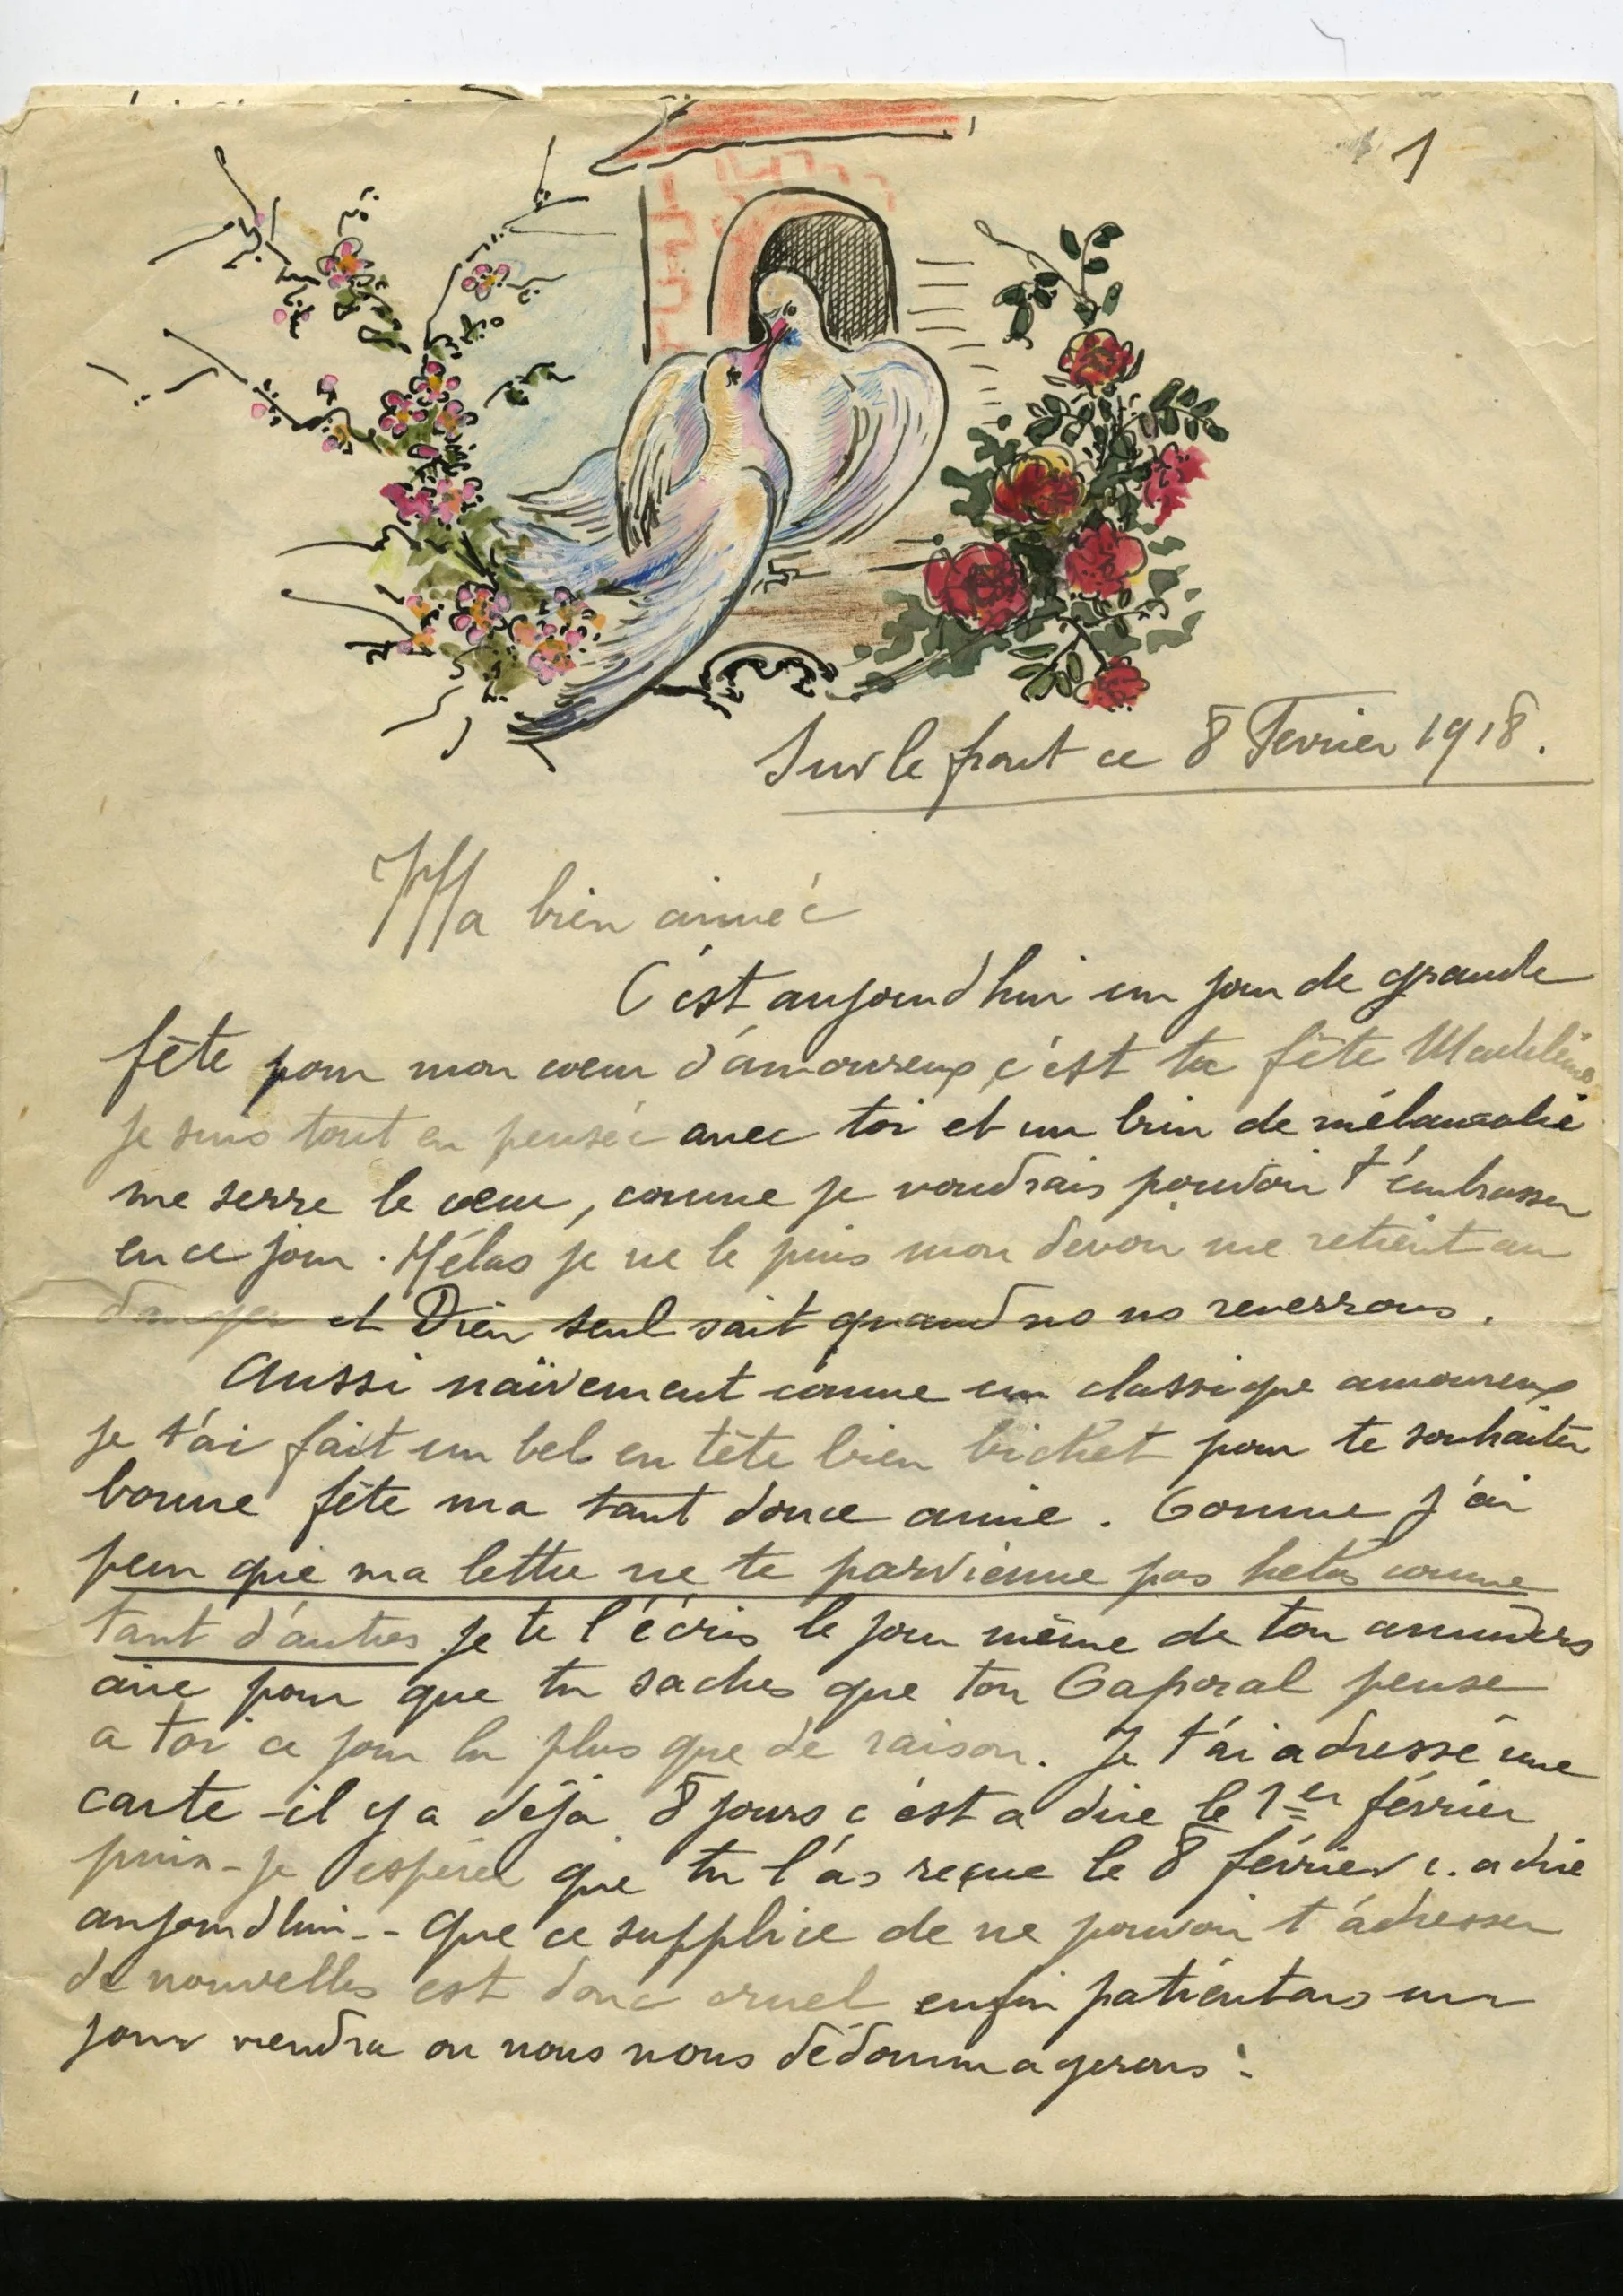 1
Sur le front ce 8 Fevrier 1918.
Ma bien aimée
C'est aujourd'hui un jour de grande
fête pour mon cœur d'amoureux, c'est ta fête Madeleine
je suis tout en pensée avec toi et un brin de mélancolie
me serre le cœur, comme je voudrais pouvoir t'embrasser
en ce jour. Hélas je ne le puis mon devoir me retient au
danger et Dieu seul sait quand ns ns reverrons.
Aussi naïvement comme un classique amoureux
je t'ai fait un bel en tête bien pour te souhaiter
bonne fête ma tant douce amie. Comme j'ai
peur que ma lettre ne te parvienne pas helas comme
tant d'autres je te l'écris le jour même de ton annivers
aire pour que tu saches que ton Caporal pense
a toi ce jour la plus que de raison. Je t'ai adressé une
carte - il y a déja 8 jours c'est a dire le 1er février
puis-je espérer que tu l'as reçue le 8 février c. a dire
aujourd'hui -- que ce supplice de ne pouvoir t'adresser
de nouvelles est donc cruel enfin patientons un
jour viendra ou nous nous dédommagerons.